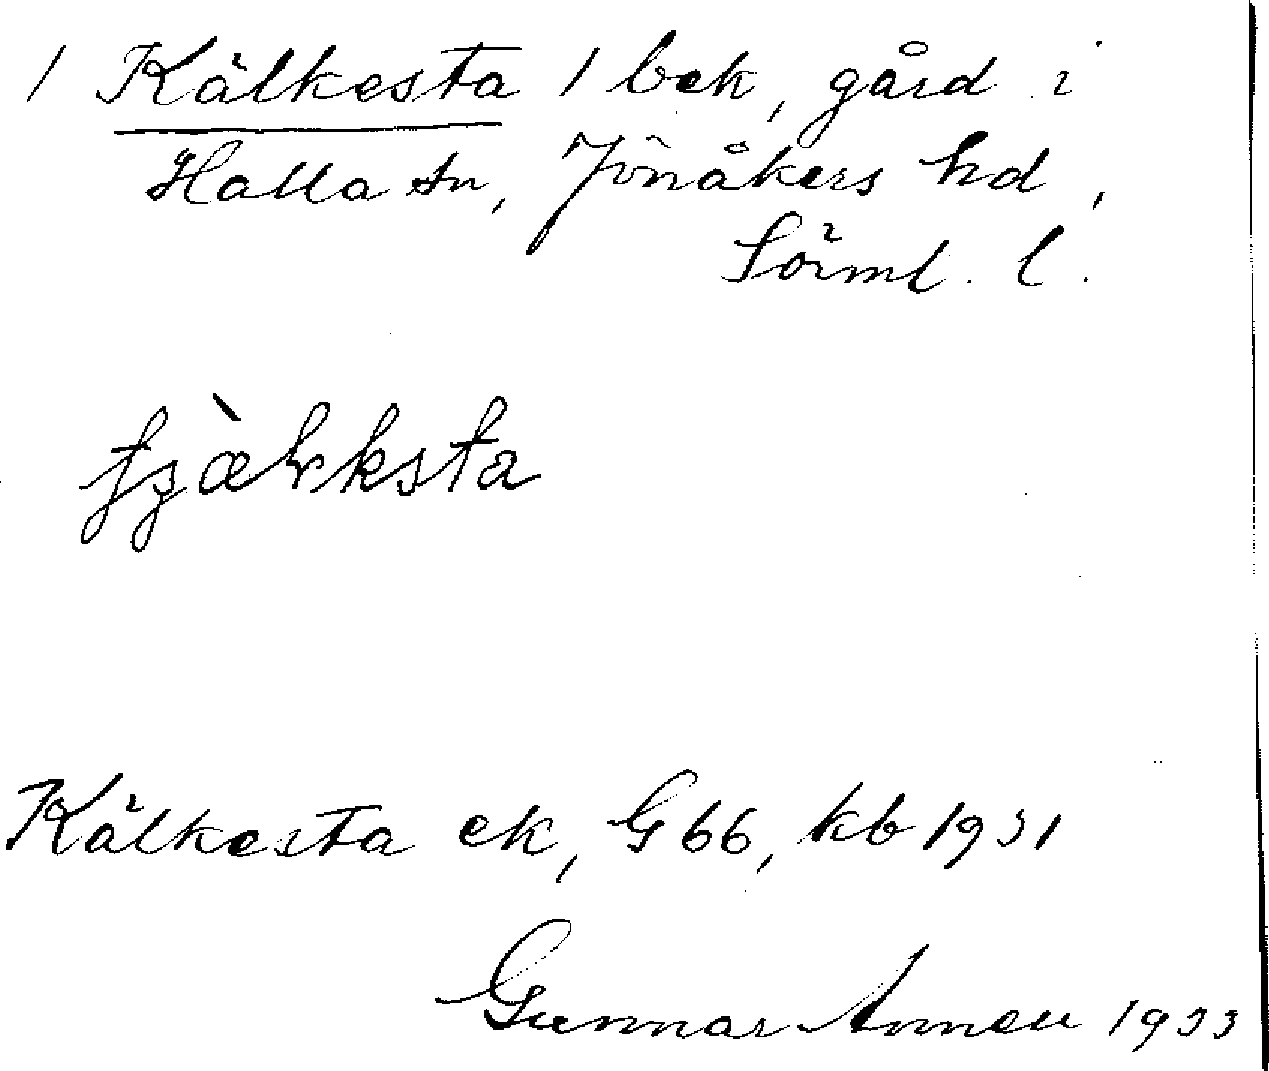 1 Kälkesta 1 bek, gård i
Halla sn, Jönåkers hd,
Sörml. l.
tjæ̀lksta
Kälkesta ek, G66, kb 1931
Gunnar 1933